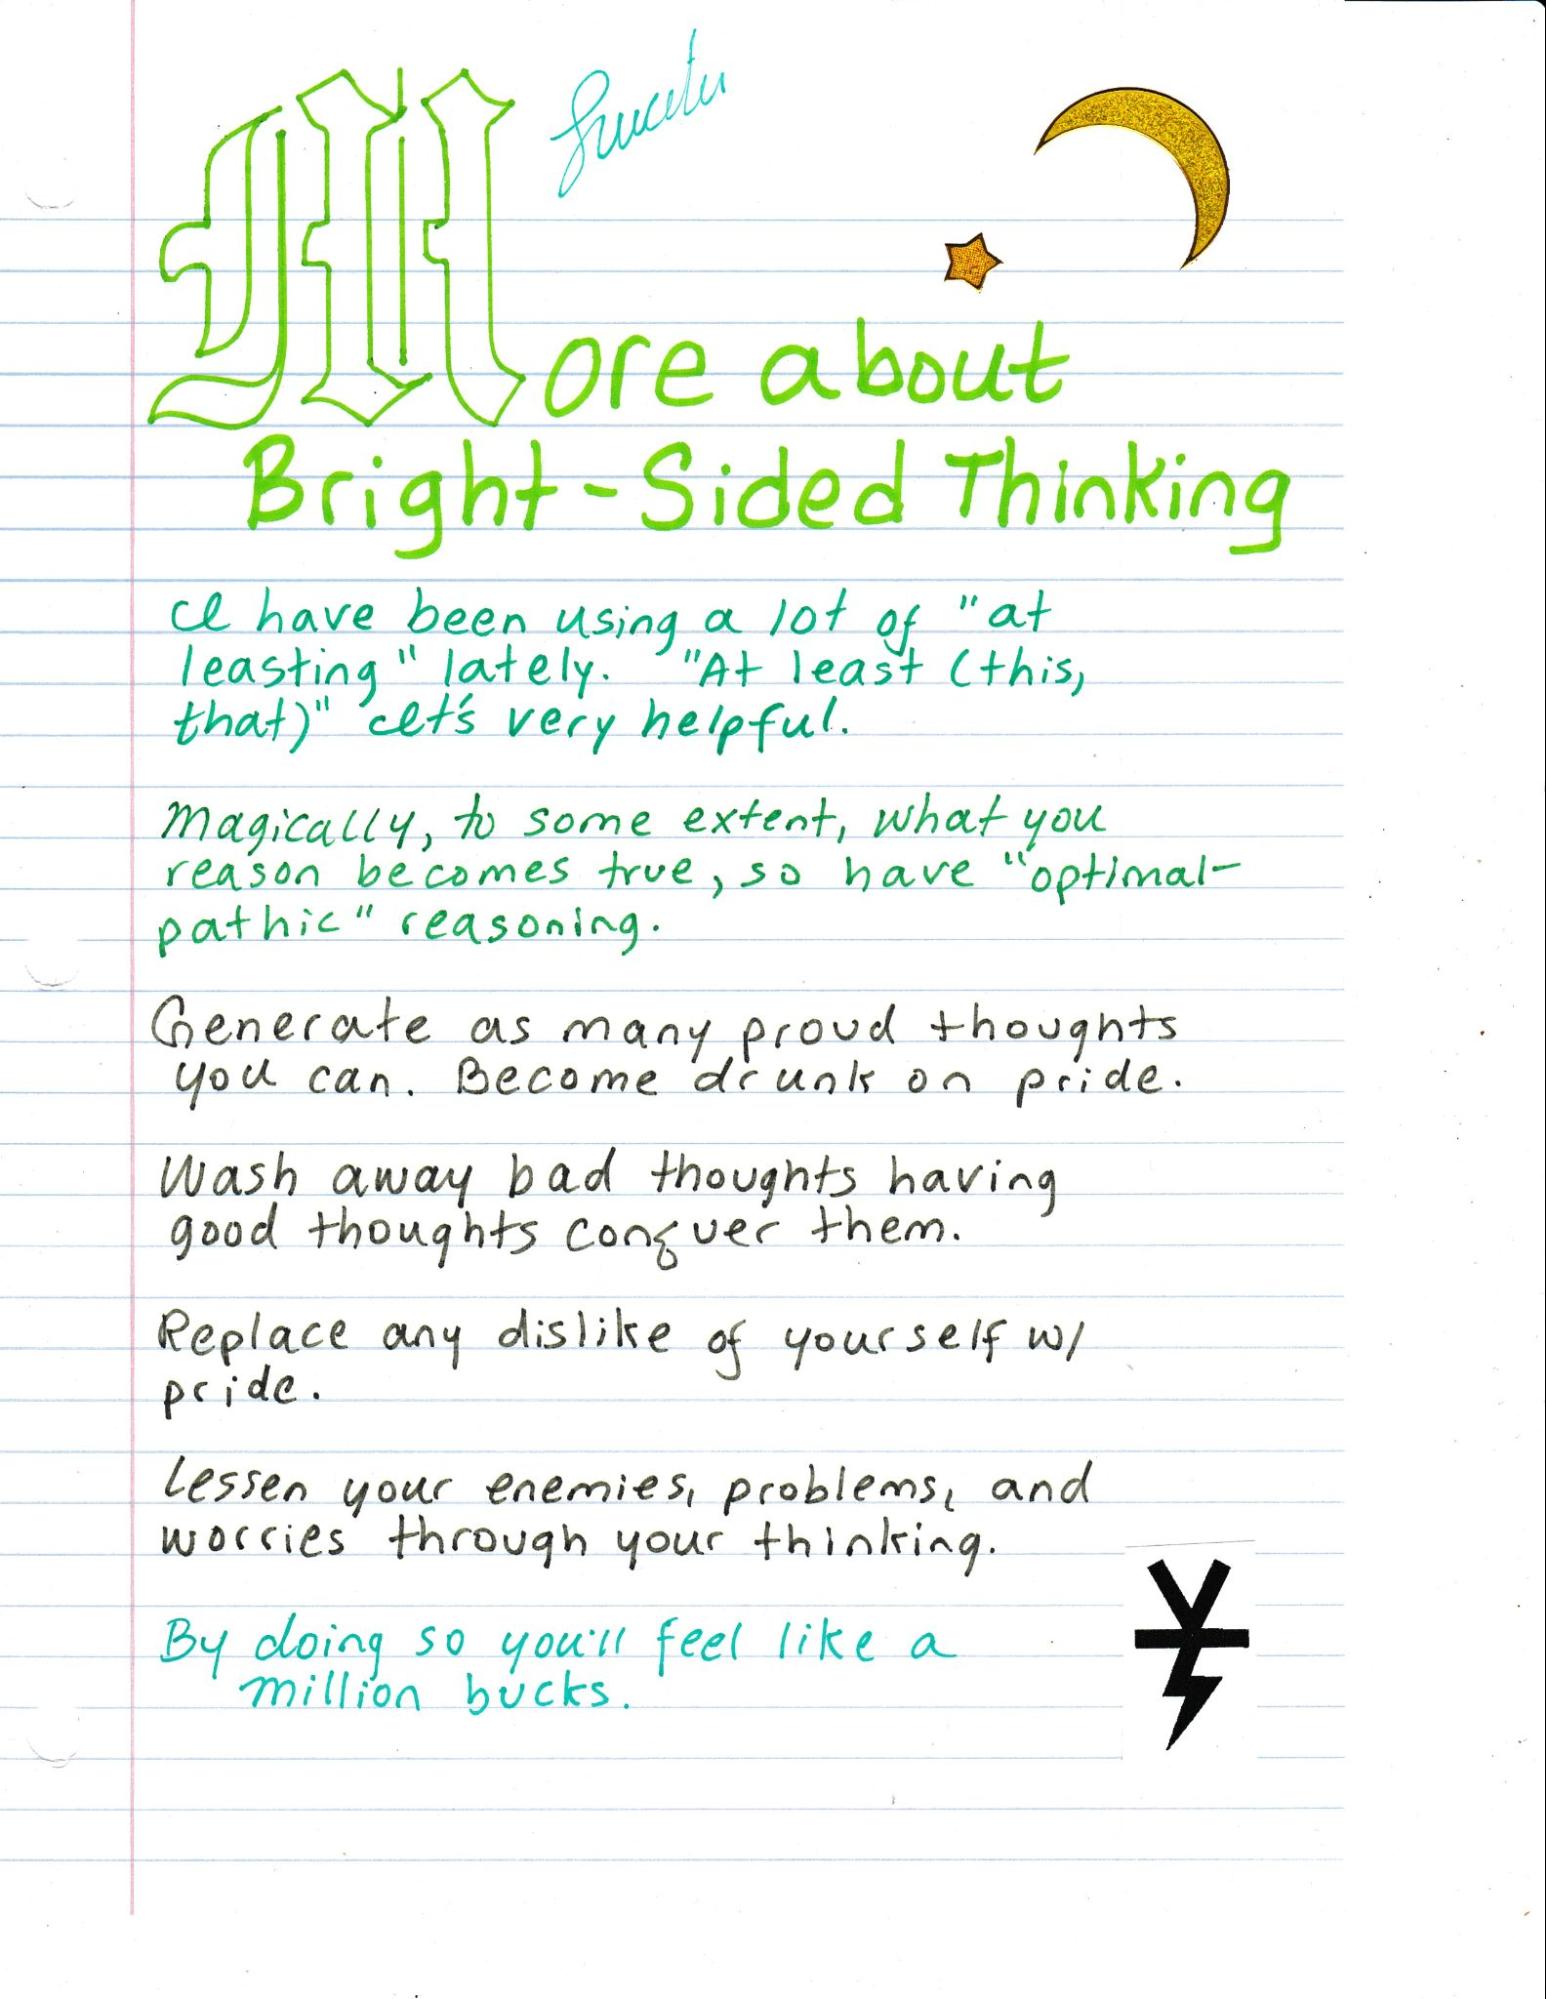 More about
Bright-Sided Thinking
I have been using a lot of "at
leasting" lately. "At least (this,
that)" It's very helpful.
Magically, to some extent, what you
reason becomes true, so have "optimal-
pathic" reasoning.
Generate as many proud thoughts
you can. Become drunk on pride.
Wash away bad thoughts having
good thoughts conquer them.
Replace any dislike of yourself w/
pride.
Lessen your enemies, problems, and
worries through your thinking.
By doing so you'll feel like a
million bucks.